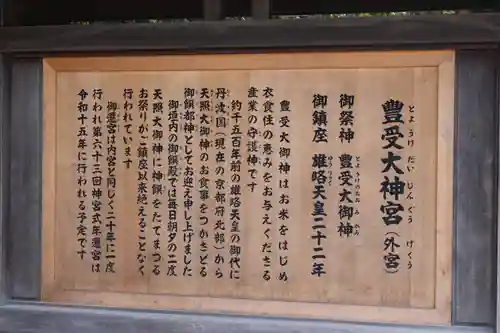 豊受大神宮（外宮）
とようけ だい じんぐう げくう
御祭神 豊受大御神
とようけのおおみかみ
御鎮座 雄略天皇二十二年
ゆうりゃく
豊受大御神はお米をはじめ
衣食住の恵みをお与えくださる
産業の守護神です
約千五百年前の雄略天皇の御代に
丹波国（現在の京都府北部）から
天照大御神のお食事をつかさどる
御饌都神としてお迎え申し上げました
御垣内の御饌殿では毎日朝夕の二度
天照大御神に神饌をたてまつる
お祭りがご鎮座以来絶えることなく
行われています
御遷宮は内宮と同じく二十年に一度
行われ第六十三回神宮式年遷宮は
令和十五年に行われる予定です